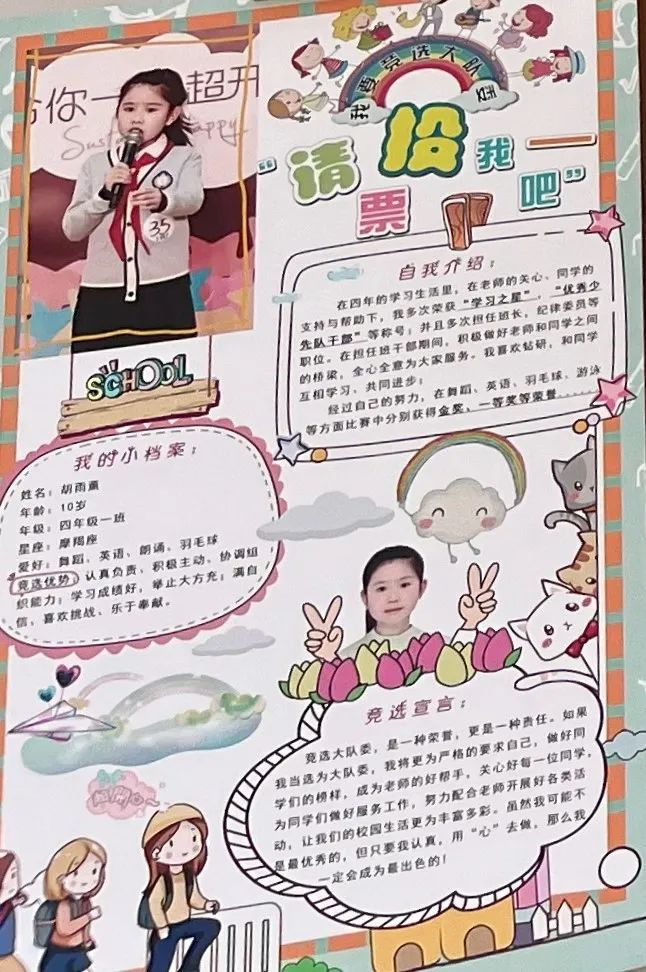 给你一 超开
Sus appy
35
SCHOOL
我要竞选大队委
“请投我一票吧”
自我介绍：
在四年的学习生活里，在老师的关心、同学的
支持与帮助下，我多次荣获“学习之星”，“优秀少
先队干部”等称号；并且多次担任班长，纪律委员等
职位。在担任班干部期间，积极做好老师和同学之间
的桥梁，全心全意为大家服务。我喜欢钻研，和同学
互相学习、共同进步；
经过自己的努力，在舞蹈、英语、羽毛球、游泳
等方面比赛中分别获得金奖、一等奖等荣誉......
我的小档案：
姓名：胡雨薰
年龄：10岁
年级：四年级一班
星座：摩羯座
爱好：舞蹈、英语、朗诵、羽毛球
竞选优势：认真负责、积极主动、协调组
织能力；学习成绩好，举止大方充；满自
信、喜欢挑战、乐于奉献。
竞选宣言：
竞选大队委，是一种荣誉，更是一种责任。如果
我当选为大队委，我将更为严格的要求自己，做好同
学们的榜样，成为老师的好帮手，关心好每一位同学，
为同学们做好服务工作，努力配合老师开展好各类活
动，让我们的校园生活更为丰富多彩。虽然我可能不
是最优秀的，但只要我认真，用“心”去做，那么我
一定会成为最出色的！